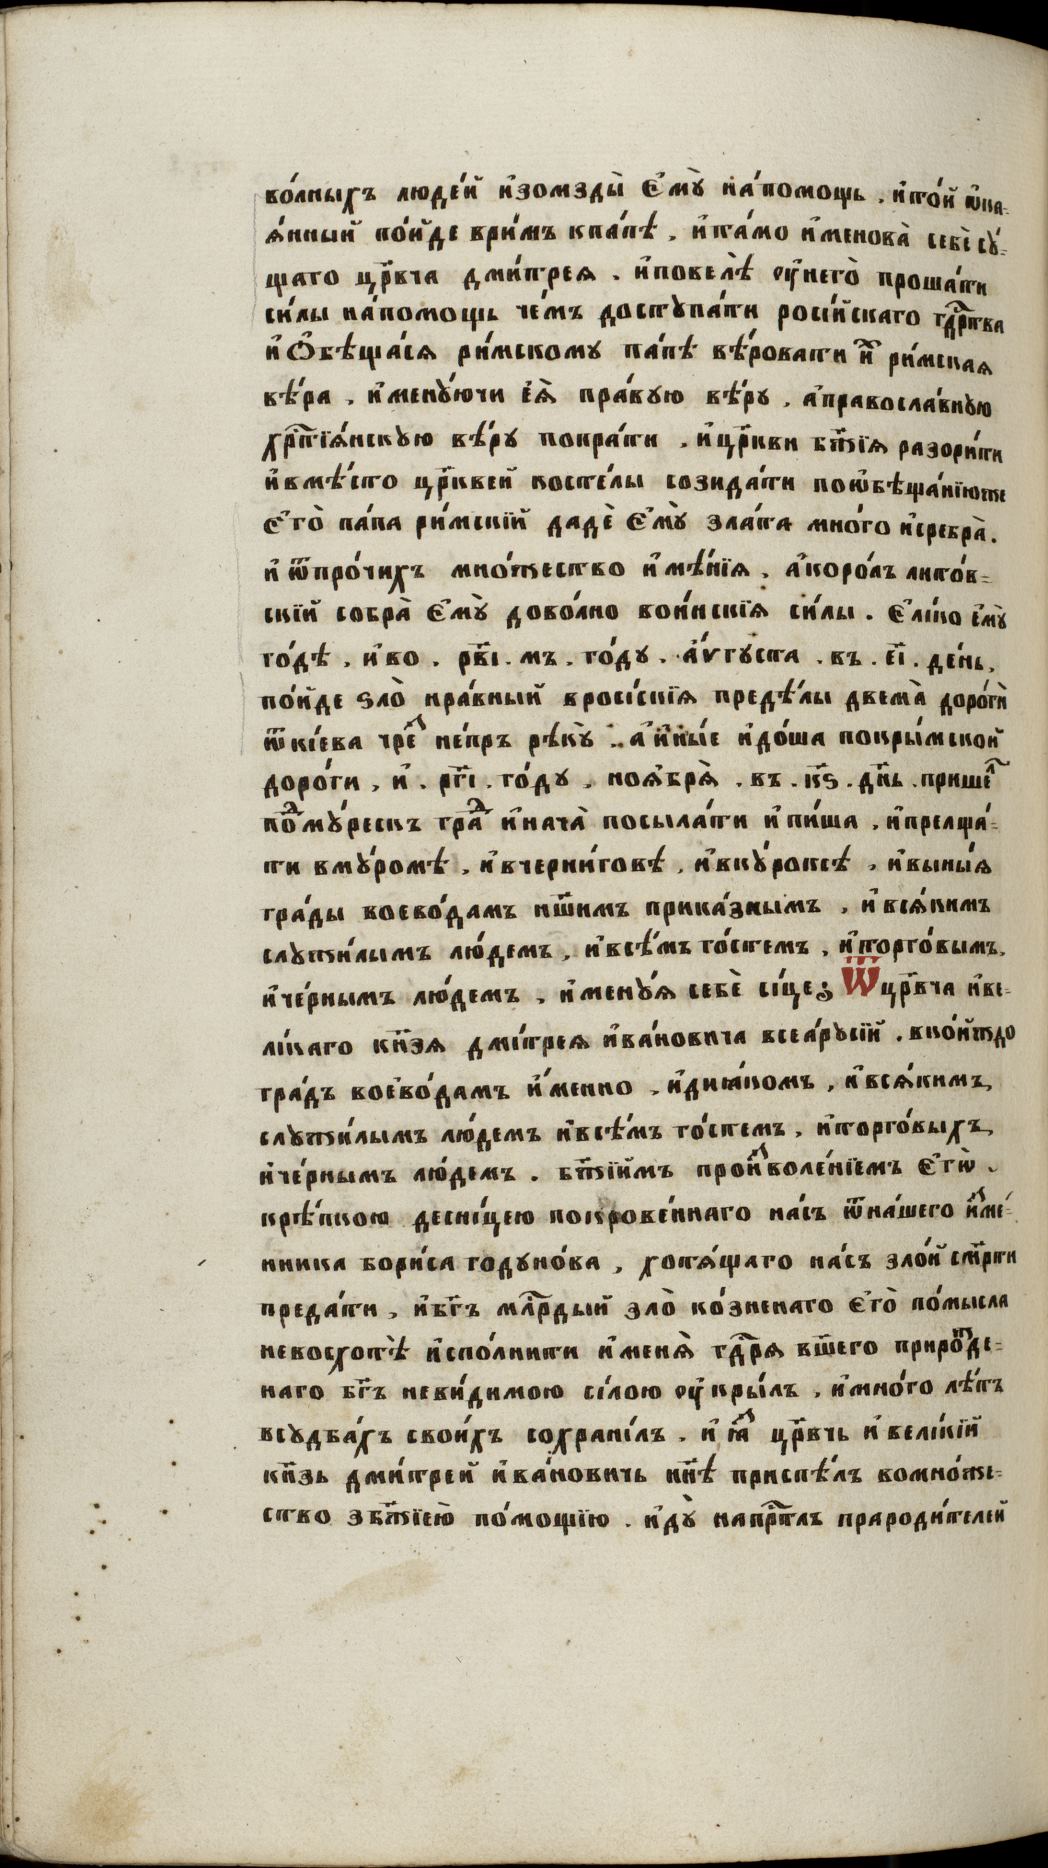 во́лныхъ люде́й и҆зомзды̀ є҆мꙋ̀ на́помощь . и҆то́й ѡ҆ка-
ѧ́нный по́йде врімъ кпа́пѣ . и҆та́мо и҆менова̀ себѐ сꙋ́-
щаго цр҃вча дми́трея . и҆повелѣ̀ ᲂу҆него̀ проша́ти
си́лы на́помощь че́мъ достꙋпа́ти росі́йскаго гдⷭ҇рⷭ҇тва
и҆ѻ҆бѣща́сѧ ри́мскомꙋ па́пѣ вѣ́ровати и҆ ри́мская
вѣ́ра . и҆менꙋ́ючи є҆ѧ̀ пра́вꙋю вѣ́рꙋ . а҆правосла́внꙋю
хрⷭ҇тїѧ́нскꙋю вѣ́рꙋ попра́ти . и҆цр҃кви бж҃їѧ разори́ти
и҆вмѣ́сто цр҃квей косте́лы созида́ти поѡ҆бѣща́нїюже
є҆гѡ̀ па́па ри́мскїй дадѐ є҆мꙋ̀ зла́та мно́го и҆сребра̀ .
и҆ ѿпро́чихъ мно́жество и҆мѣ́нїѧ . а҆коро́лъ лито́в-
скїй собра̀ є҆мꙋ̀ дово́лно вои́нскїѧ си́лы . є҆ли́ко є҆мꙋ̀
го́дѣ . и҆во . рв҃і . мъ . го́дꙋ . а҆́ѵгꙋста . въ . є҃і . де́нь .
по́йде ѕло̀ нра́вный вросі́скїѧ предѣ́лы двема̀ доро́ги
ѿкі́ева чреⷥ не́пръ рѣкꙋ̀ . а҆ и҆ны́е и҆до́ша покры́мской
доро́ги . и҆ . рг҃і . го́дꙋ . ноѧ҆брѧ̀ . въ . к҃ѕ . дн҃ь . пришеⷧ
поⷣмꙋ́рескъ граⷣ и҆нача̀ посыла́ти и҆пи́ша . и҆прелща́-
ти вмꙋ́ромѣ . и҆вчерни́говѣ . и҆вкꙋ́ропсѣ . и҆выны́ѧ
гра́ды воево́дамъ нш҃имъ прика́знымъ . и҆всѧ́кимъ
слꙋжи́лымъ лю́демъ . и҆всѣ́мъ го́стемъ . и҆торго́вымъ .
и҆че́рнымъ лю́демъ . и҆менꙋ́ѧ себѐ си́це ; Ѿцр҃вча и҆ве-
лі́каго кн҃зѧ дмі́трея и҆ва́новича всеа́рꙋсїй . вко́йждо
гра́дъ воево́дамъ и҆́менно . и҆діꙗ́комъ . и҆всѧ́кимъ
слꙋжи́лымъ лю́демъ и҆всѣ́мъ го́стемъ . и҆торго́выхъ
и҆че́рнымъ лю́демъ . бж҃їимъ прои́ⷥволе́нїемъ є҆гѡ̀ .
крѣ́пкою десни́цею покрове́ннаго на́съ ѿна́шего и҆ⷥмѣ́-
нника бори́са годꙋно́ва , хотѧ́щаго на́съ зло́й см҃рти
преда́ти , и҆бг҃ъ млⷭ҇рдый зло̀ ко́зненаго є҆гѡ̀ по́мысла
невосхотѣ̀ и҆спо́лнити и҆менѧ̀ гдⷭ҇рѧ вш҃его приро́жде-
наго бг҃ъ неви́димою сі́лою ᲂу҆кры́лъ . и҆мно́го лѣ́тъ
всꙋдба́хъ свои́хъ сохрані́лъ . и҆ ꙗ҆́ цр҃вчь и҆ велі́кїй
кн҃зь дми́трей и҆ва́новичь нн҃ѣ приспѣ́лъ вомно́же-
ство збж҃їею по́мощїю . и҆дꙋ̀ напрⷭ҇то́лъ прароди́телей